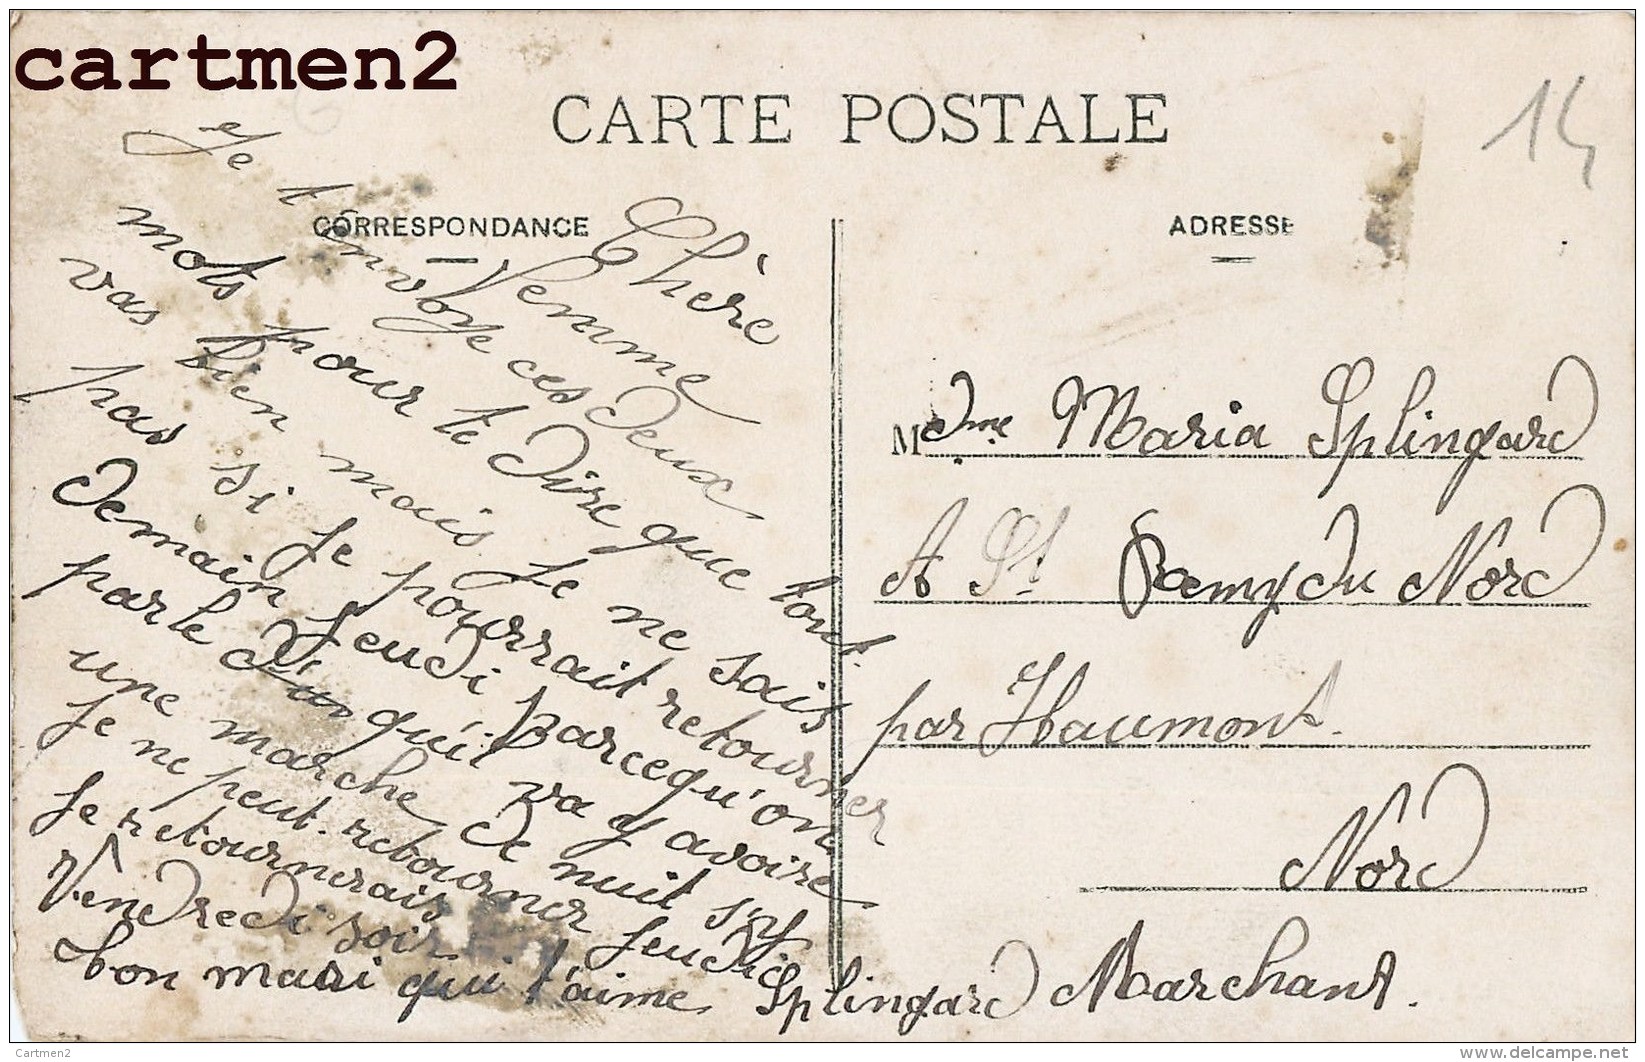 cartmen2
14
CARTE POSTALE
CORRESPONDANCE
ADRESSE
Chère
Femme
Je t envoye ces deux
mots pour te dire que tout
vas bien mais je ne sais
pas si je pourrait retourner
demain jeudi parcequ'on
parle d'un qu'il va y avoire
une marche de nuit si
je ne peut retourner jeudi
je retournerais
Vendredi soir
bon mari qui t'aime Splingard Marchant.
Mdme Maria Splingard
A St Remy du Nord
par Haumont.
Nord
Cartmen2
delcampe.net